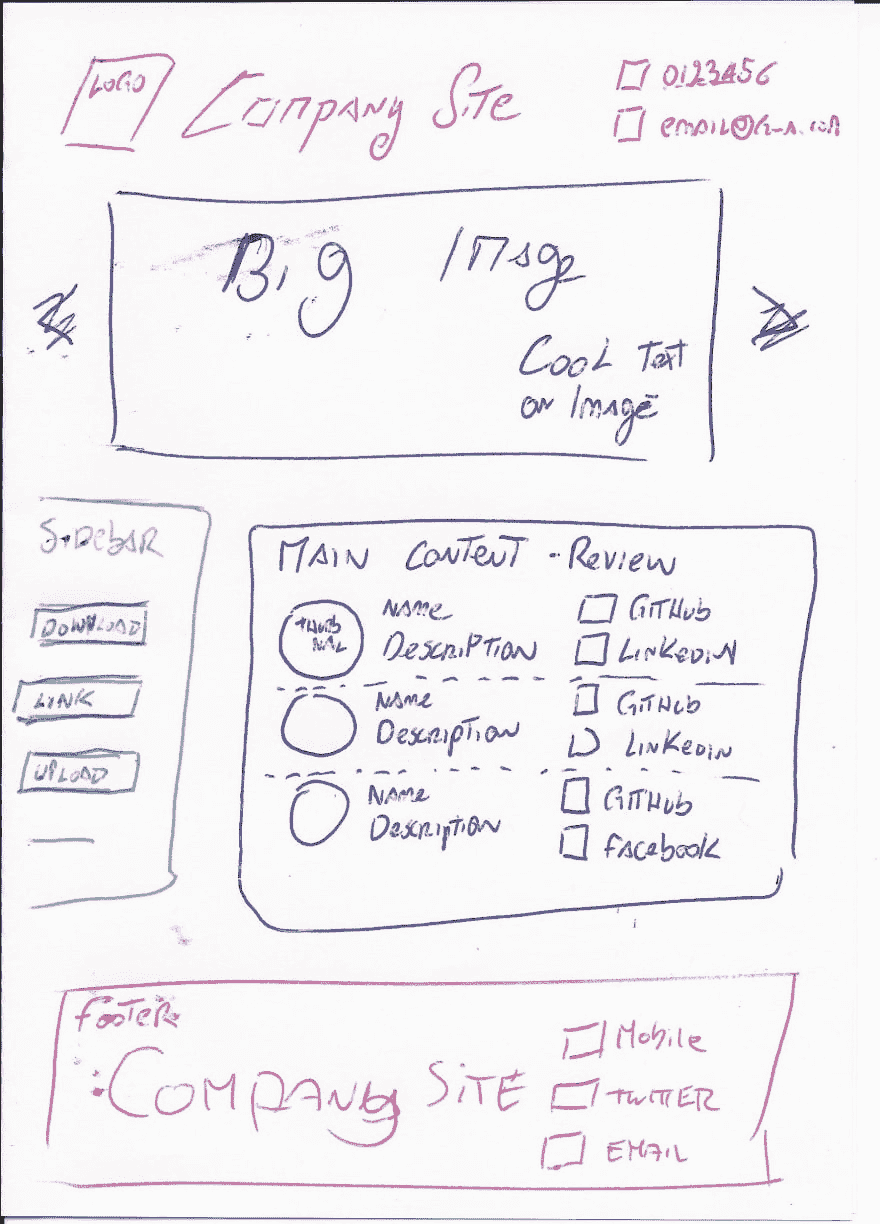 LOGO
Company Site
0123456
Big Imsge
Cool Text
on Image
SideBAR
DOWNLOAD
LINK
UPLOAD
MAIN CONTENT - Review
NAMe
Description
GitHub
LinkedIN
NAMe
Description
GitHub
Linkedin
NAMe
Description
GitHub
facebook
footer
COMPANy SiTE
Mobile
TWITTER
EMAIL